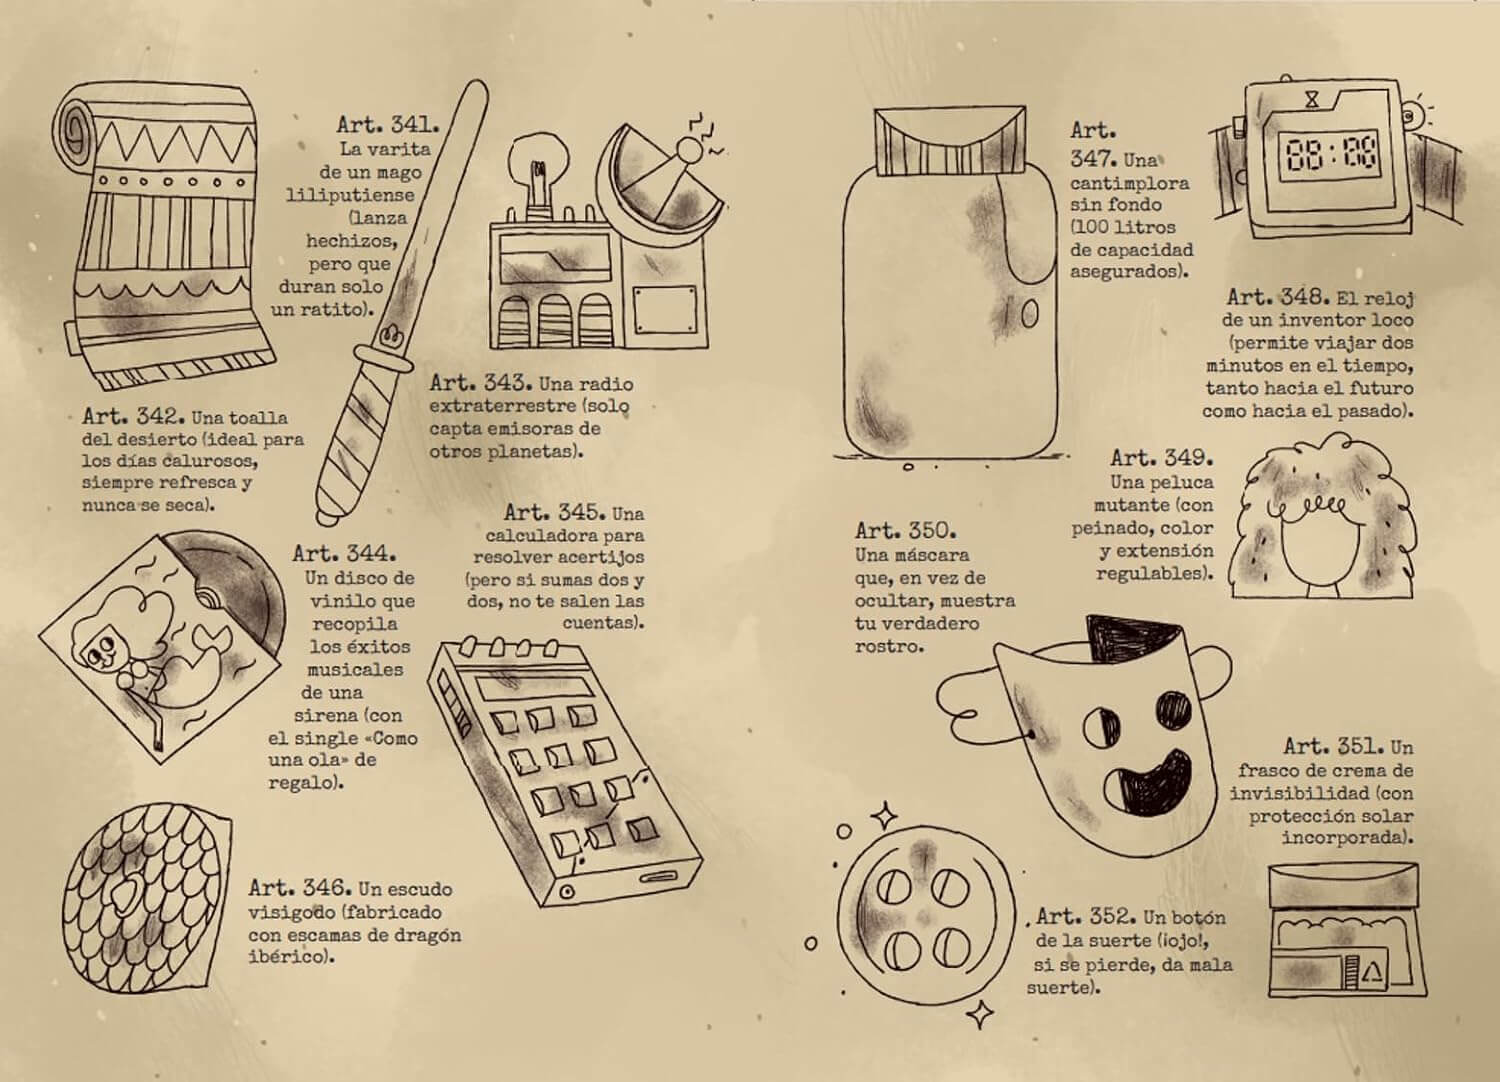 Art. 341.
La varita
de un mago
liliputiense
(lanza
hechizos,
pero que
duran solo
un ratito).
Art. 342. Una toalla
del desierto (ideal para
los días calurosos,
siempre refresca y
nunca se seca).
Art. 343. Una radio
extraterrestre (solo
capta emisoras de
otros planetas).
Art. 344.
Un disco de
vinilo que
recopila
los éxitos
musicales
de una
sirena (con
el single «Como
una ola» de
regalo).
Art. 345. Una
calculadora para
resolver acertijos
(pero si sumas dos y
dos, no te salen las
cuentas).
Art. 346. Un escudo
visigodo (fabricado
con escamas de dragón
ibérico).
Art.
347. Una
cantimplora
sin fondo
(100 litros
de capacidad
asegurados).
88:88
Art. 348. El reloj
de un inventor loco
(permite viajar dos
minutos en el tiempo,
tanto hacia el futuro
como hacia el pasado).
Art. 349.
Una peluca
mutante (con
peinado, color
y extensión
regulables).
Art. 350.
Una máscara
que, en vez de
ocultar, muestra
tu verdadero
rostro.
Art. 351. Un
frasco de crema de
invisibilidad (con
protección solar
incorporada).
Art. 352. Un botón
de la suerte (¡ojo!,
si se pierde, da mala
suerte).